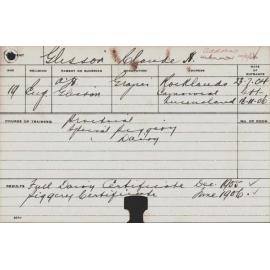 Glissor Claude H.
AGE RELIGION PARENT OR GUARDIAN OCCUPATION ADDRESS DATE OF ENTRANCE
19 Eng A H Glissor Grazier Rocklands Camooweal Queensland 23.7.04
Left
16.11.06
COURSE OF TRAINING Practical
Special Piggery
" Dairy
RESULTS Full Dairy Certificate Dec. 1905 ✓
Piggery Certificate June 1906 ✓